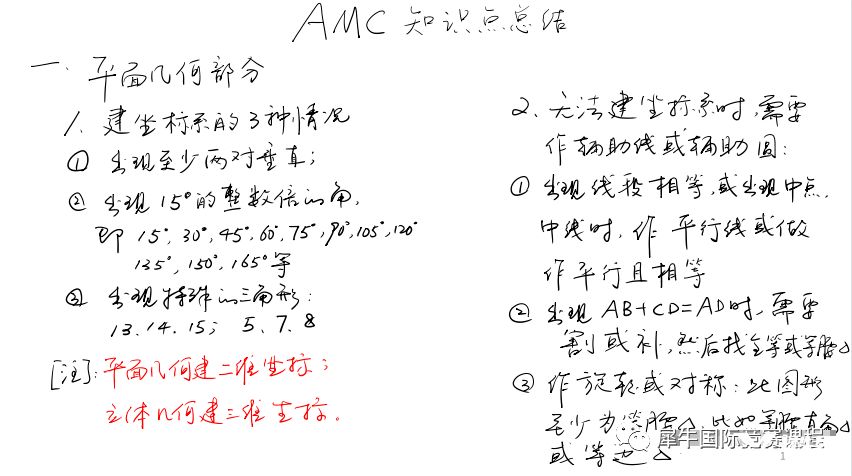 AMC 知识点总结
一、平面几何部分
1、建坐标系的3种情况
① 出现至少两对垂直；
② 出现15°的整数倍的角，
即 15°, 30°, 45°, 60°, 75°, 90°, 105°, 120°
135°, 150°, 165° 等
③ 出现特殊的三角形：
13、14、15； 5、7、8
[注]：平面几何建二维坐标；
立体几何建三维坐标。
2、无法建坐标系时，需要
作辅助线或辅助圆：
① 出现线段相等，或出现中点，
中线时，作平行线或做
作平行且相等
② 出现 AB+CD=AD时，需要
割或补，然后找全等或等腰△
③ 作旋转或对称：此图形
至少为等腰△，比如等腰直角△
或等边△
犀牛国际竞赛课程
1